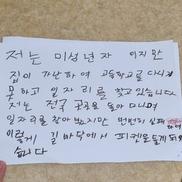 저는 미성년자 이지만
집이 가난하여 고등학교를 다니지
못하고 일자리를 찾고 있습니다
저는 전국 곳곳을 돌아 다니며
일자리를 찾아 봤지만 번번히 실패
하여
이렇게 길바닥에서 피켓을 들게 되었
습니다